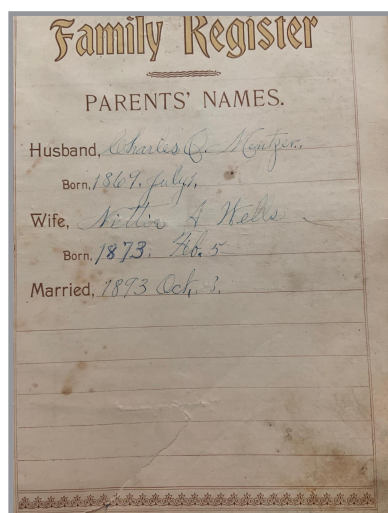 Family Register
PARENTS' NAMES.
Husband, Charles Mentzer.
Born, 1869. July 1,
Wife, Nettie A Wells
Born, 1873. Feb. 5
Married, 1893 Oct. 3.